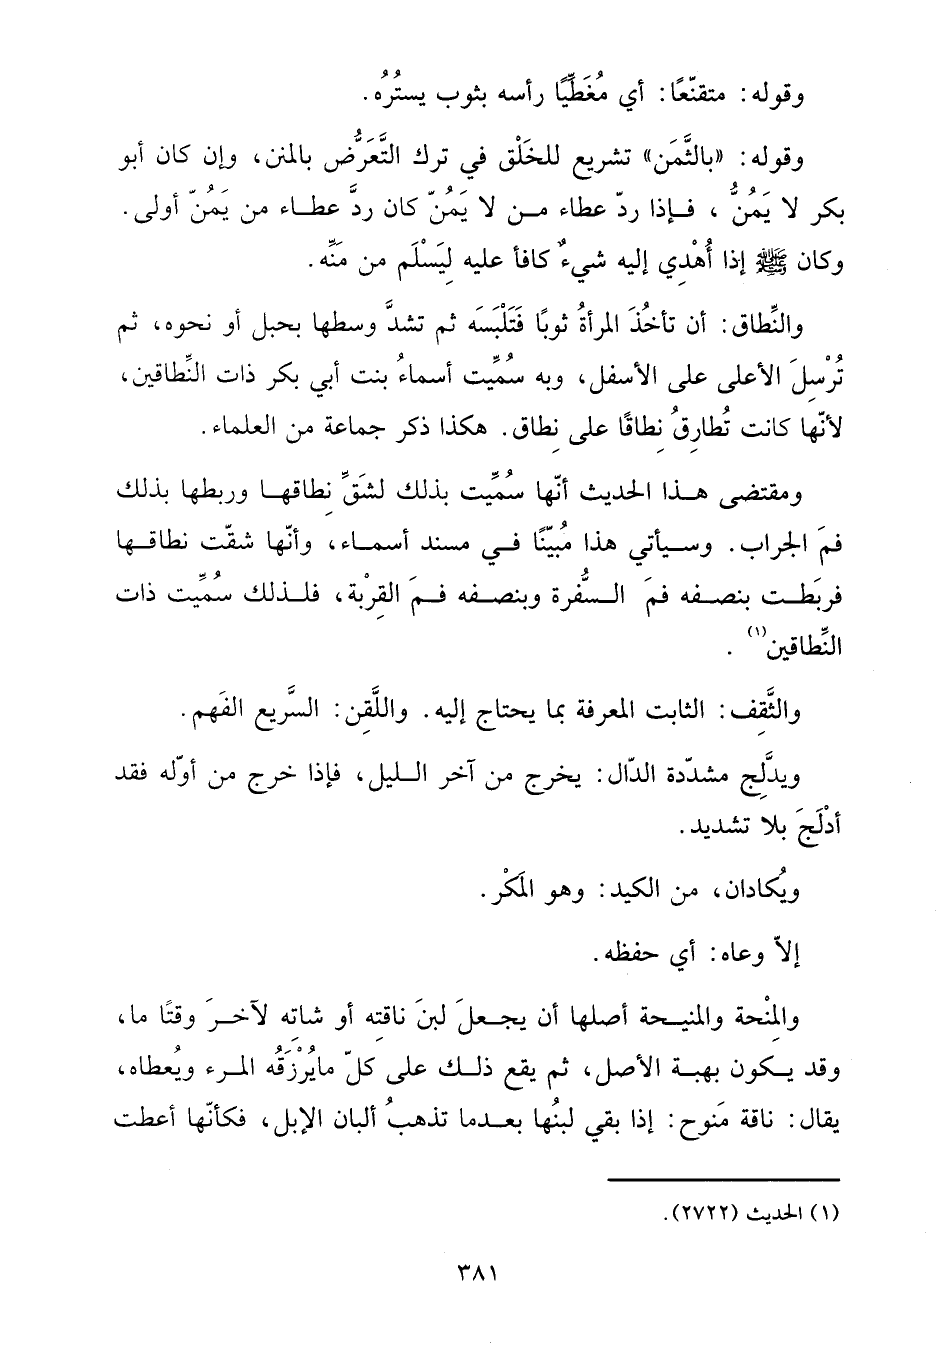 وقوله: متقنّعًا: أي مُغَطِّيًا رأسه بثوب يستُرُه.
وقوله: «بالثَّمَن» تشريع للخَلْق في ترك التَّعَرُّض بالمنن، وإن كان أبو
بكر لا يَمُنُّ ، فإذا ردّ عطاء من لا يَمُنّ كان ردَّ عطاء من يَمُنّ أولى.
وكان ﷺ إذا أُهْدِي إليه شيءٌ كافأ عليه لِيَسْلَم من مَنِّه.
والنِّطاق: أن تأخُذَ المرأةُ ثوبًا فَتَلْبَسَه ثم تشدَّ وسطها بحبل أو نحوه، ثم
تُرْسِلَ الأعلى على الأسفل، وبه سُمِّيت أسماءُ بنت أبي بكر ذات النِّطاقين،
لأنّها كانت تُطارِقُ نِطاقًا على نِطاق. هكذا ذكر جماعة من العلماء.
ومقتضى هذا الحديث أنّها سُمِّيت بذلك لشَقِّ نِطاقها وربطها بذلك
فمَ الجراب. وسيأتي هذا مُبيّنًا في مسند أسماء، وأنّها شقّت نطاقها
فربَطت بنصفه فمَ السُّفرة وبنصفه فمَ القِرْبة، فلذلك سُمِّيت ذات
النِّطاقين(١) .
والثَّقِف: الثابت المعرفة بما يحتاج إليه. واللَّقِن: السَّريع الفَهم.
ويدَّلِج مشدّدة الدّال: يخرج من آخر الليل، فإذا خرج من أوّله فقد
أدْلَجَ بلا تشديد.
ويُكادان، من الكيد: وهو المَكْر.
إلاّ وعاه: أي حفظه.
والمِنْحة والمنيحة أصلها أن يجعلَ لبنَ ناقتِه أو شاتِه لآخرَ وقتًا ما،
وقد يكون بهبة الأصل، ثم يقع ذلك على كلّ مايُرْزَقُه المرء ويُعطاه،
يقال: ناقة مَنوح: إذا بقي لبنُها بعدما تذهبُ ألبان الإبل، فكأنّها أعطت
(١) الحديث (٢٧٢٢).
٣٨١